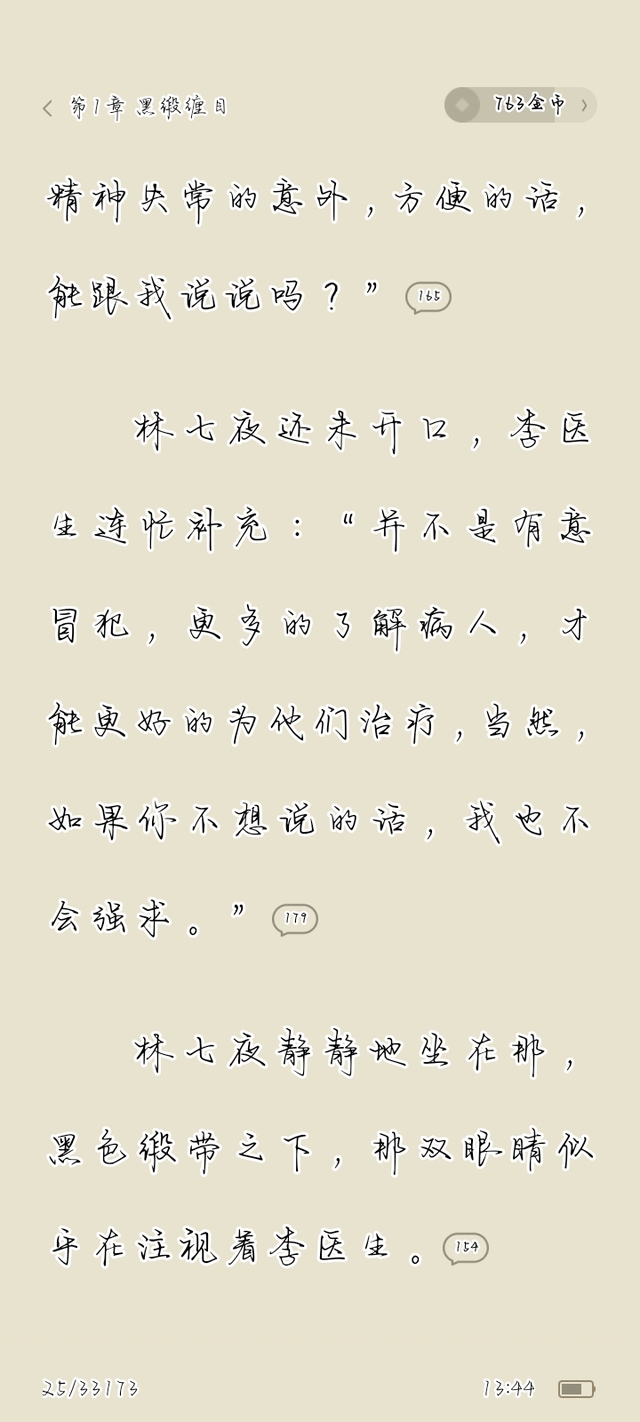 第1章 黑缎缠目
763金币
精神失常的意外，方便的话，
能跟我说说吗？” 165
林七夜还未开口，李医
生连忙补充：“并不是有意
冒犯，更多的了解病人，才
能更好的为他们治疗，当然，
如果你不想说的话，我也不
会强求。” 179
林七夜静静地坐在那，
黑色缎带之下，那双眼睛似
乎在注视着李医生。 154
25/33173
13:44